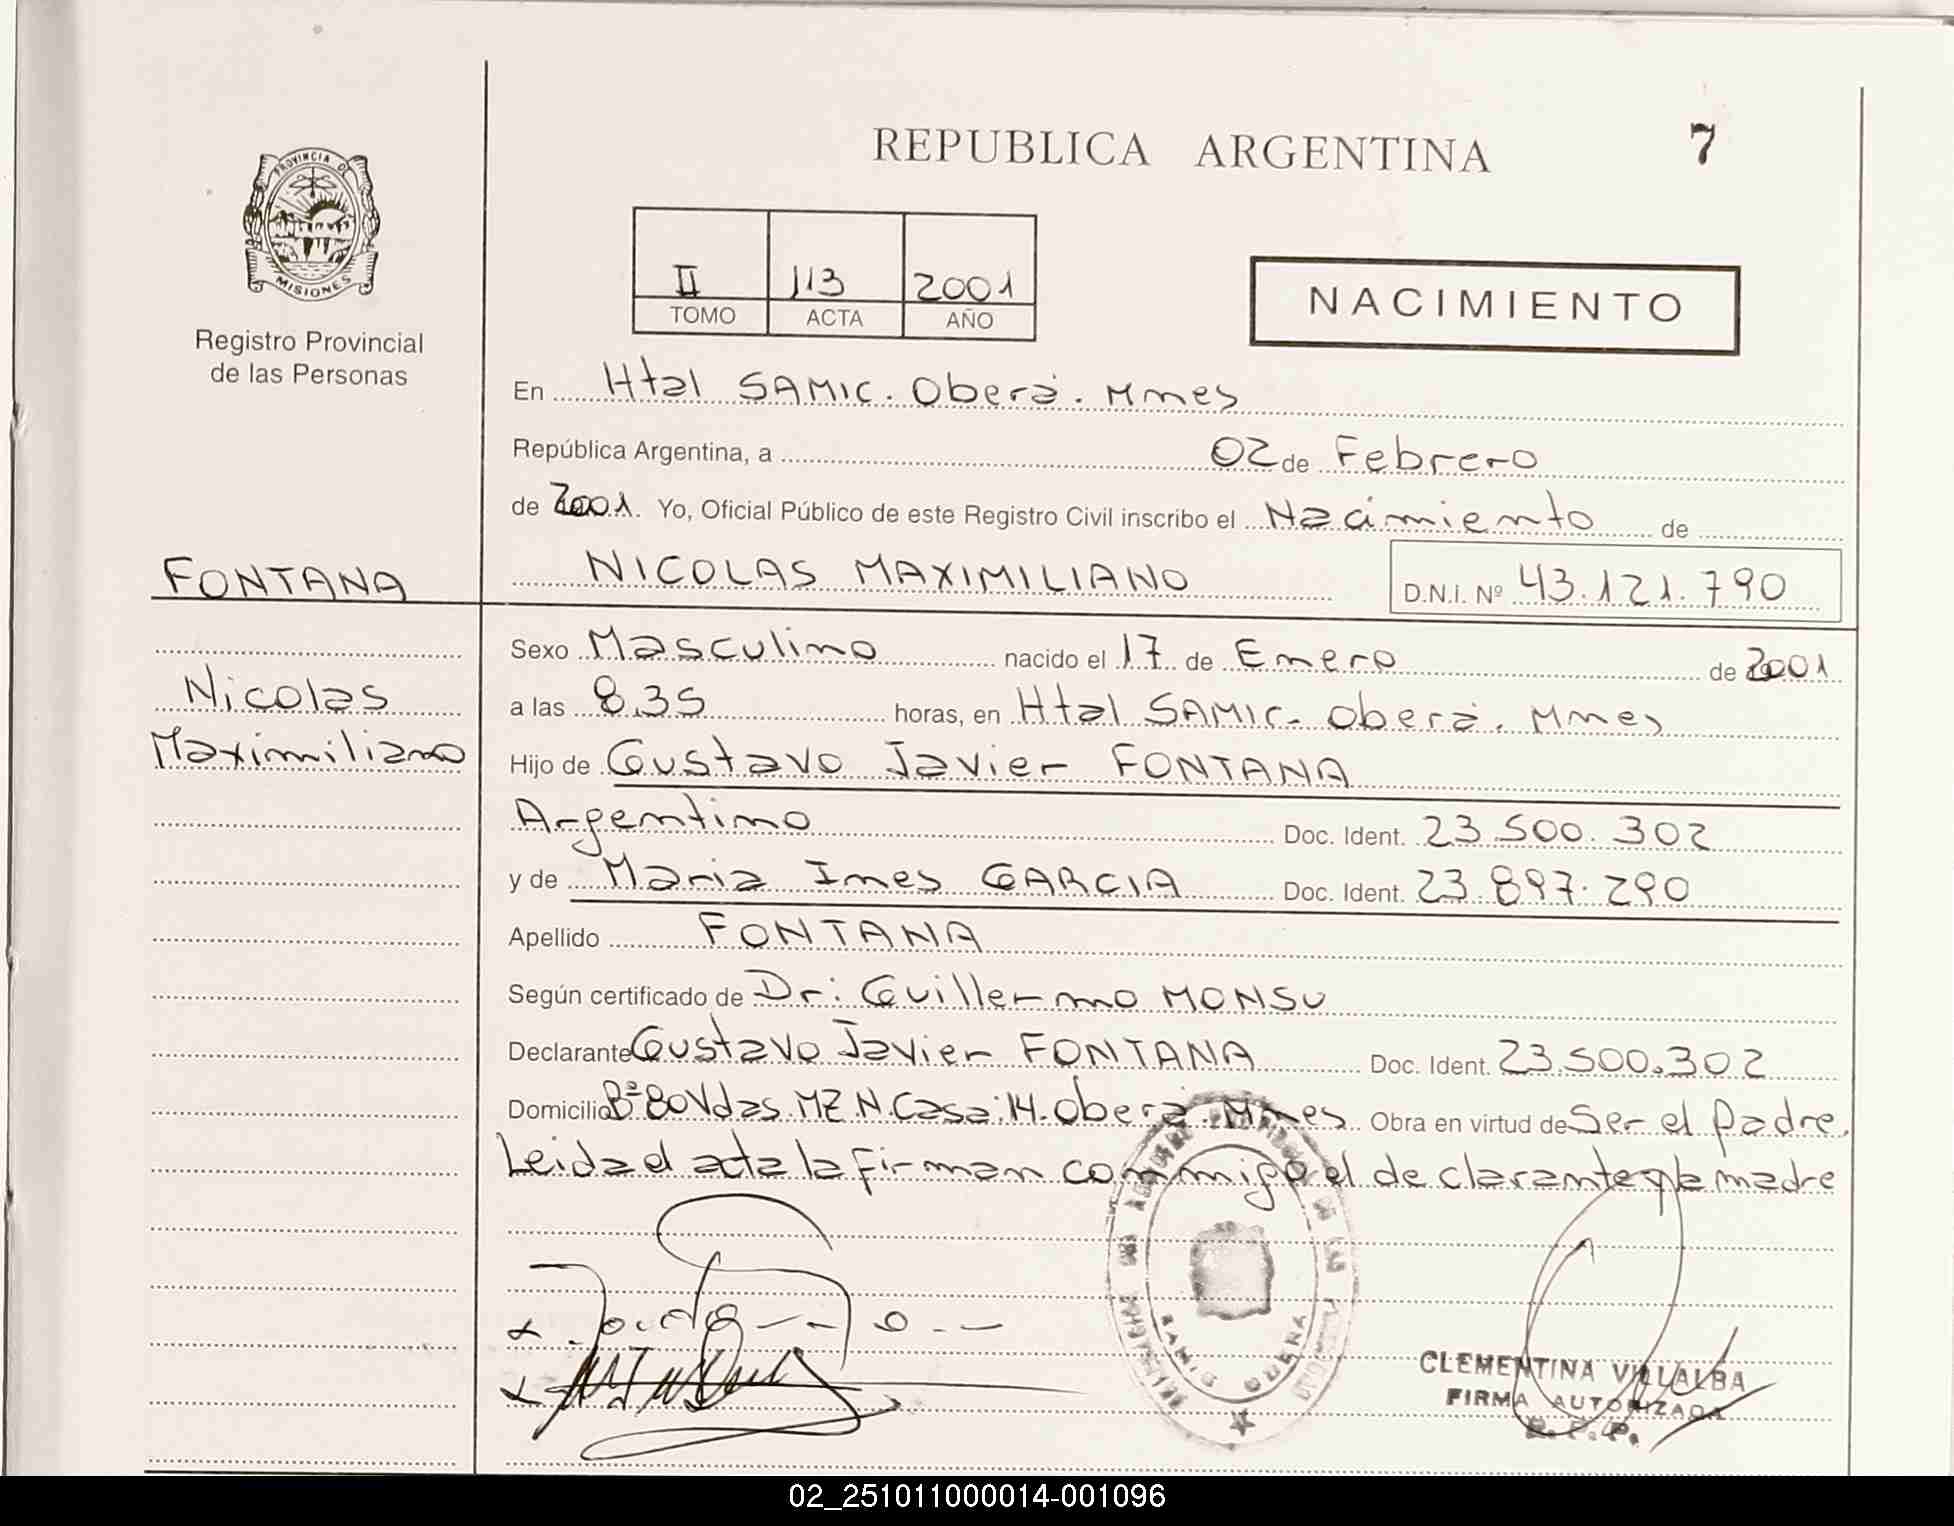 REPUBLICA ARGENTINA
7
PROVINCIA DE
MISIONES
Registro Provincial
de las Personas
II 113 2001
TOMO ACTA AÑO
NACIMIENTO
En Htal SAMIC. Oberá. Mnes
República Argentina, a 02 de Febrero
de 2001. Yo, Oficial Público de este Registro Civil inscribo el Nacimiento de
FONTANA
NICOLAS MAXIMILIANO D.N.I. Nº 43.121.790
Nicolas
Maximiliano
Sexo Masculino nacido el 17 de Enero de 2001
a las 8,35 horas, en Htal SAMIC. Oberá. Mnes
Hijo de Gustavo Javier FONTANA
Argentino Doc. Ident. 23.500.302
y de Maria Ines GARCIA Doc. Ident. 23.897.290
Apellido FONTANA
Según certificado de Dr: Guillermo MONSU
Declarante Gustavo Javier FONTANA Doc. Ident. 23.500.302
Domicilio Bº 80 Vdas. MZ N. Casa: 14. Oberá. Mnes Obra en virtud de Ser el padre.
Leida el acta la firman conmigo el declarante y la madre
CLEMENTINA VILLALBA
FIRMA AUTORIZADA
R. P. P.
02_251011000014-001096